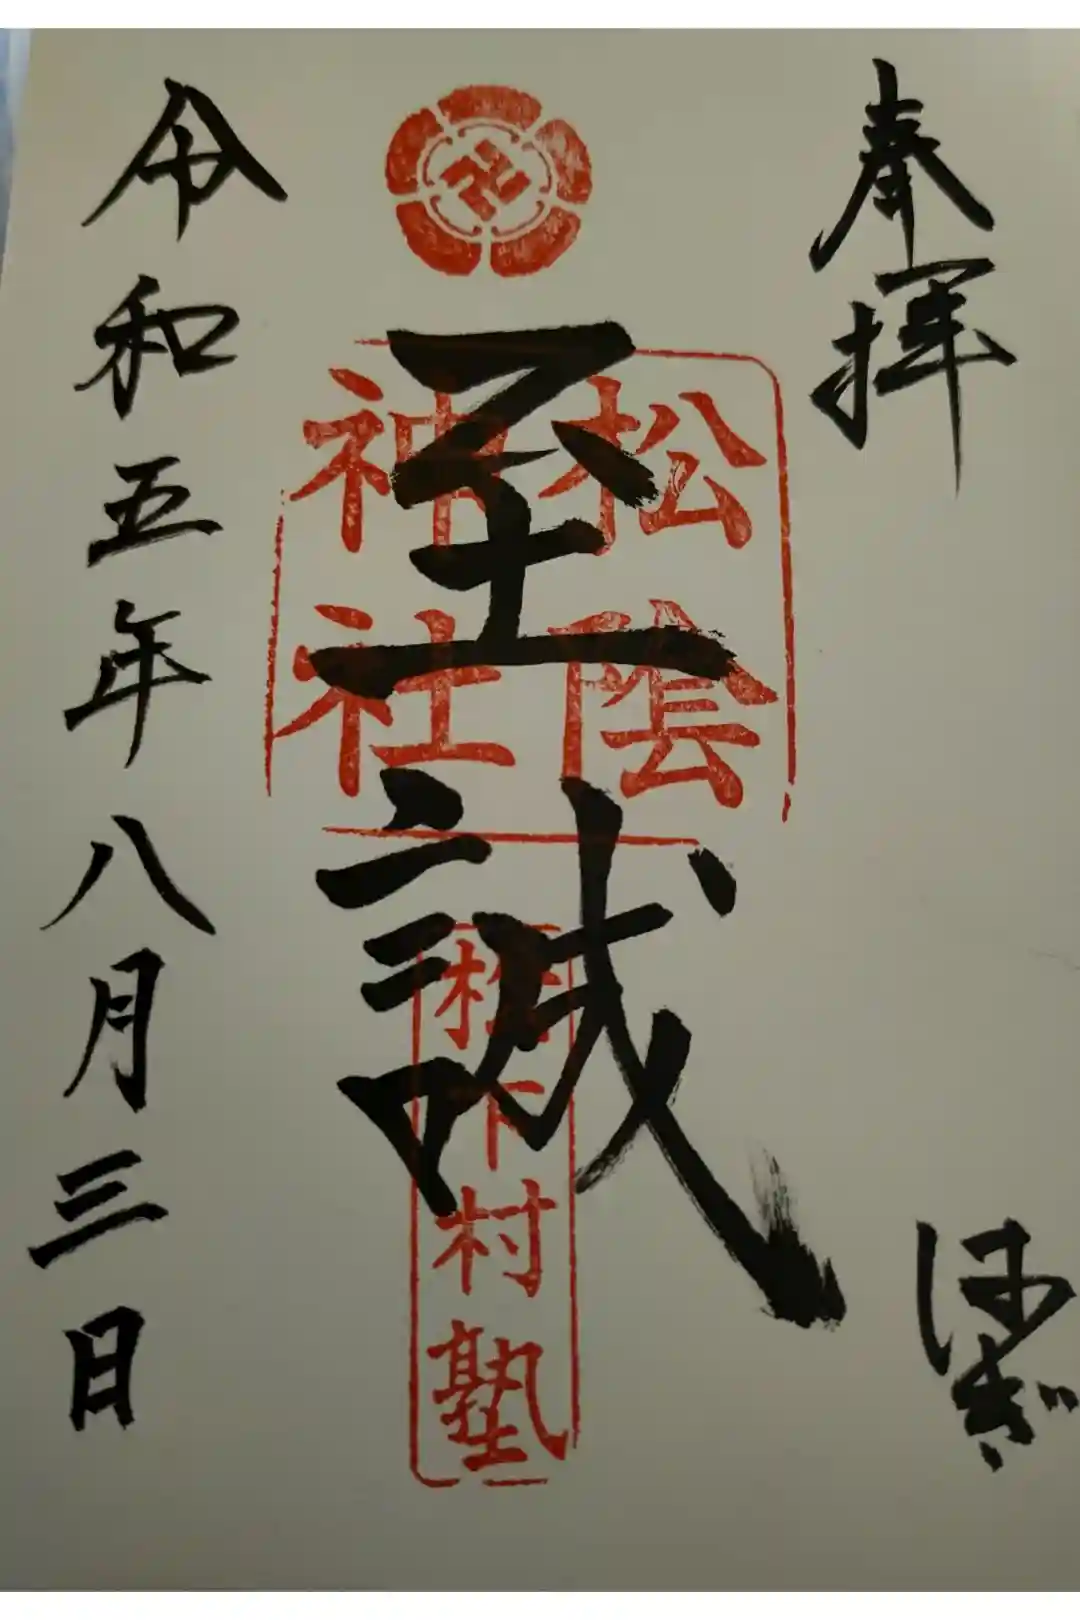 奉拝
はぎ
松陰
神社
至誠
松下村塾
令和五年八月三日